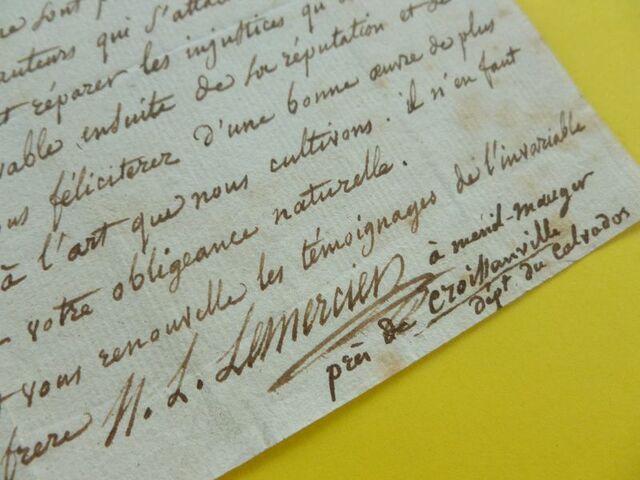 sont
auteurs qui s'atta
réparer les injustices qu
vable ensuite de sa réputation et de
féliciterez d'une bonne œuvre de plus
à l'art que nous cultivons. il n'en faut
votre obligeance naturelle.
vous renouvelle les témoignages de l'invariable
frere N. L. Lemercier
à ménil-mauger
près de Croissanville
dépt. du Calvados